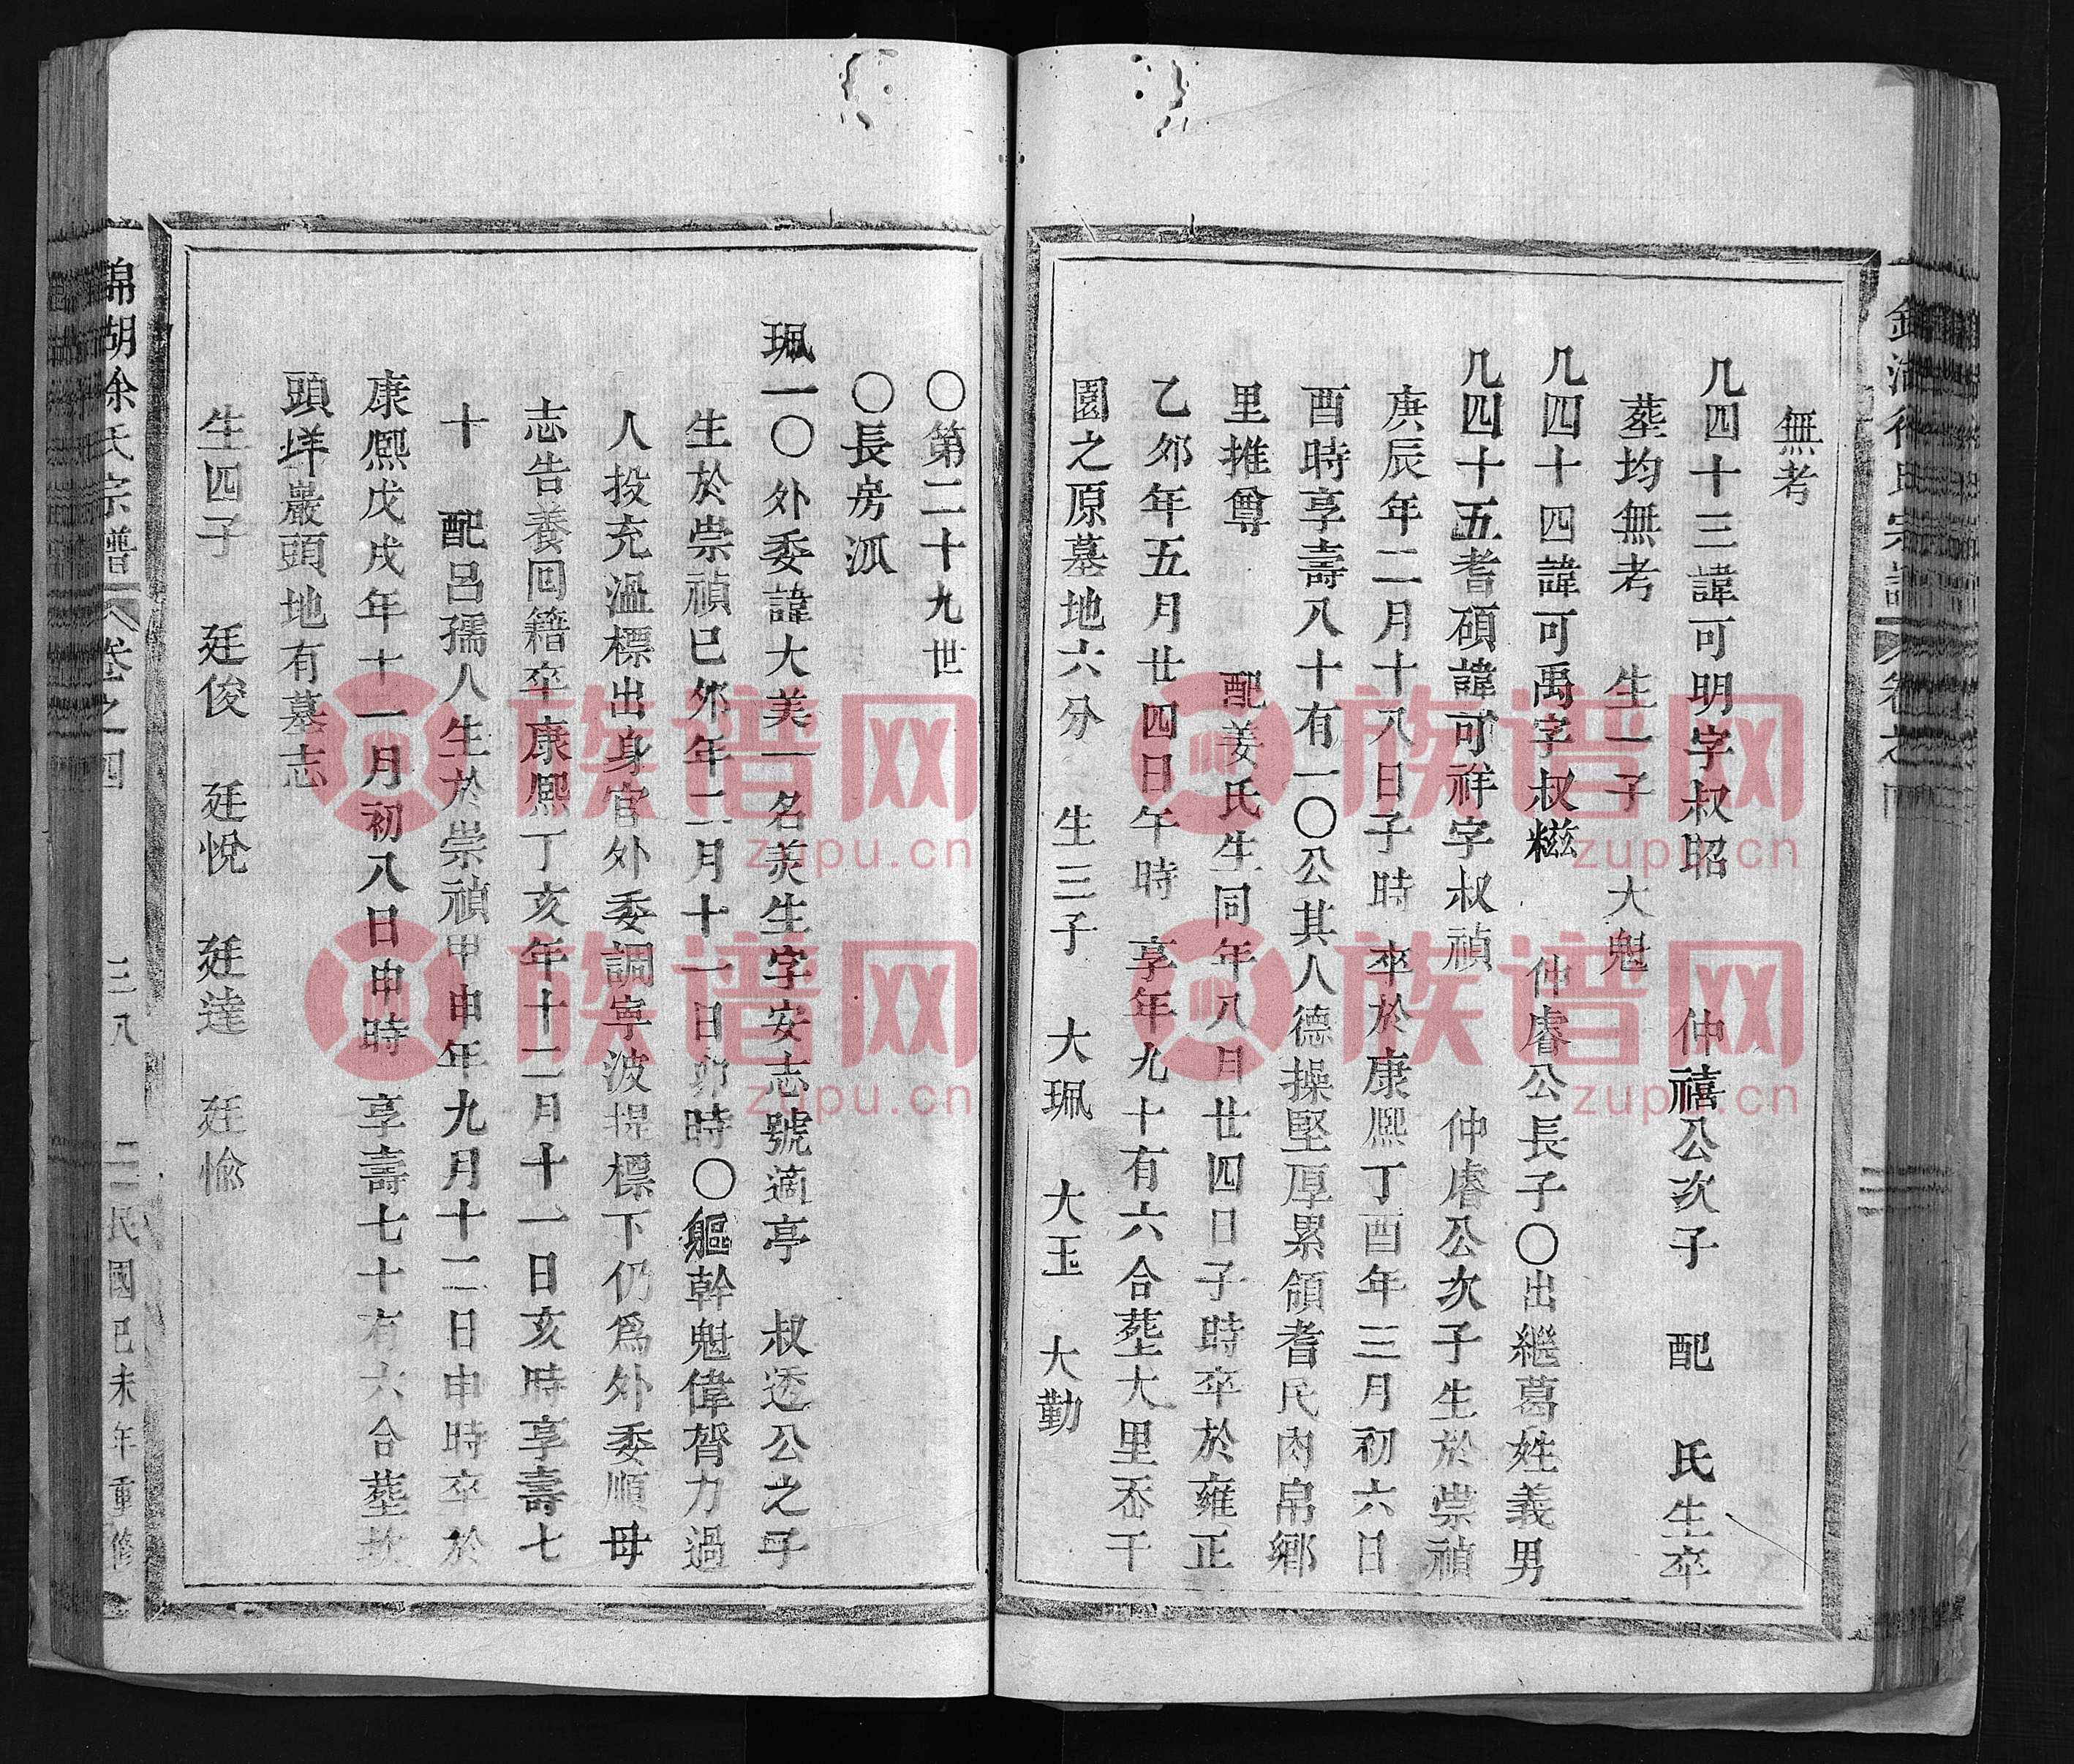 無考
几四十三諱可明字叔昭 仲禧公次子 配 氏生卒
葬均無考 生一子 大魁
几四十四諱可禹字叔糍 仲睿公長子〇出繼葛姓義男
几四十五耆碩諱可祥字叔禎 仲睿公次子生於崇禎
庚辰年二月十八日子時卒於康熙丁酉年三月初六日
酉時享壽八十有一〇公其人德操堅厚累領耆民肉帛鄉
里推尊 配姜氏生同年八月廿四日子時卒於雍正
乙夘年五月廿四日午時 享年九十有六合葬大里岙干
園之原墓地六分 生三子 大珮 大玉 大勤
〇第二十九世
〇長房派
珮一〇外委諱大美一名美生字安志號適亭 叔透公之子
生於崇禎已夘年二月十一日夘時〇軀幹魁偉膂力過
人投充溫標出身官外委調寕波提標下仍爲外委順母
志告養回籍卒康熙丁亥年十二月十一日亥時享壽七
十 配呂孺人生於崇禎甲申年九月十二日申時卒於
康熙戊戌年十一月初八日申時 享壽七十有六合葬坎
頭垟巖頭地有墓志
生四子 廷俊 廷悅 廷達 廷愉
錦湖余氏宗譜 卷之四 三八 民國己未年重修
族谱网
zupu.cn
族谱网
zupu.cn
族谱网
zupu.cn
族谱网
zupu.cn